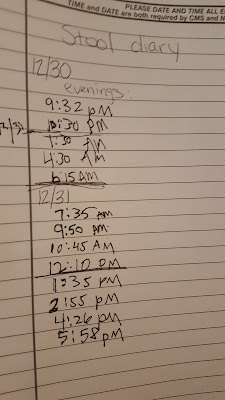 PLEASE DATE AND TIME ALL E
TIME and DATE are both required by CMS and N
Stool diary
12/30
evenings:
9:32 PM
10:30 PM
1:30 AM
4:30 AM
6:15 AM
12/31
7:35 AM
9:50 AM
10:45 AM
12:10 PM
1:35 PM
2:55 PM
4:26 PM
5:58 PM